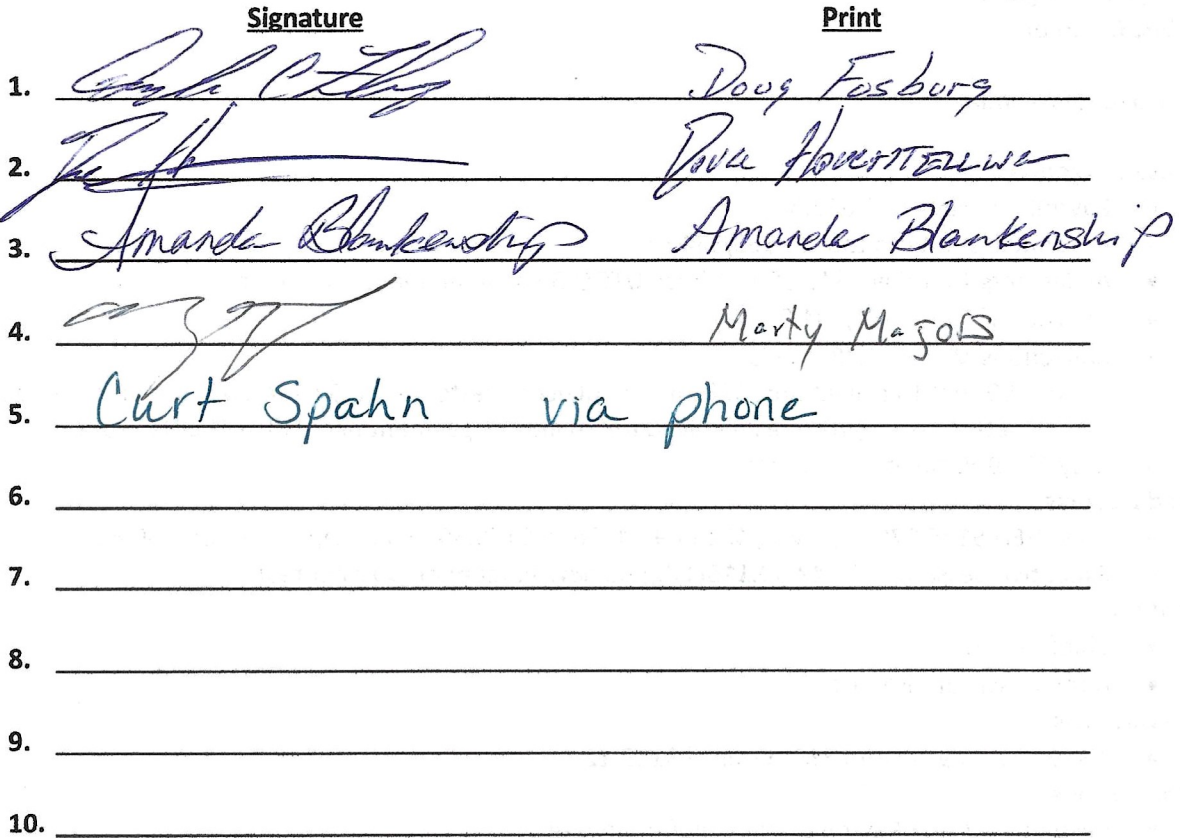 Signature Print
1. Doug Fosburg
2.
3. Amanda Blankenship Amanda Blankenship
4. Marty Majors
5. Curt Spahn via phone
6.
7.
8.
9.
10.